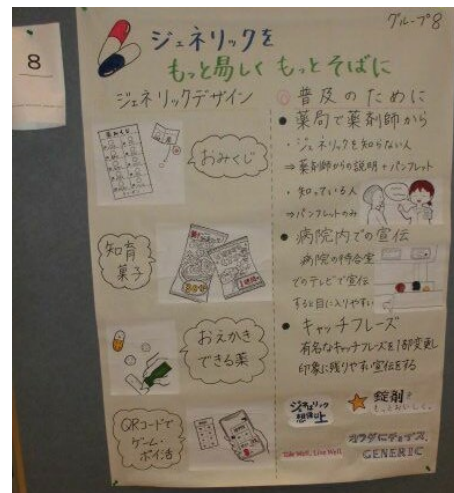 8
グループ8
ジェネリックを
もっと易しく もっとそばに
ジェネリックデザイン
おみくじ
知育
菓子
おえかき
できる薬
QRコードで
ゲーム・
ポイ活
◎普及のために
● 薬局で薬剤師から
・ジェネリックを知らない人
⇒薬剤師からの説明+パンフレット
・知っている人
⇒パンフレットのみ
● 病院内での宣伝
病院の待合室
でのテレビで宣伝
すると目に入りやすい
● キャッチフレーズ
有名なキャッチフレーズを1部変更し
印象に残りやすい宣伝をする
ジェネリック
想像以上
錠剤を
もっとおいしく。
Take Well, Live Well
カラダにピース。
GENERIC